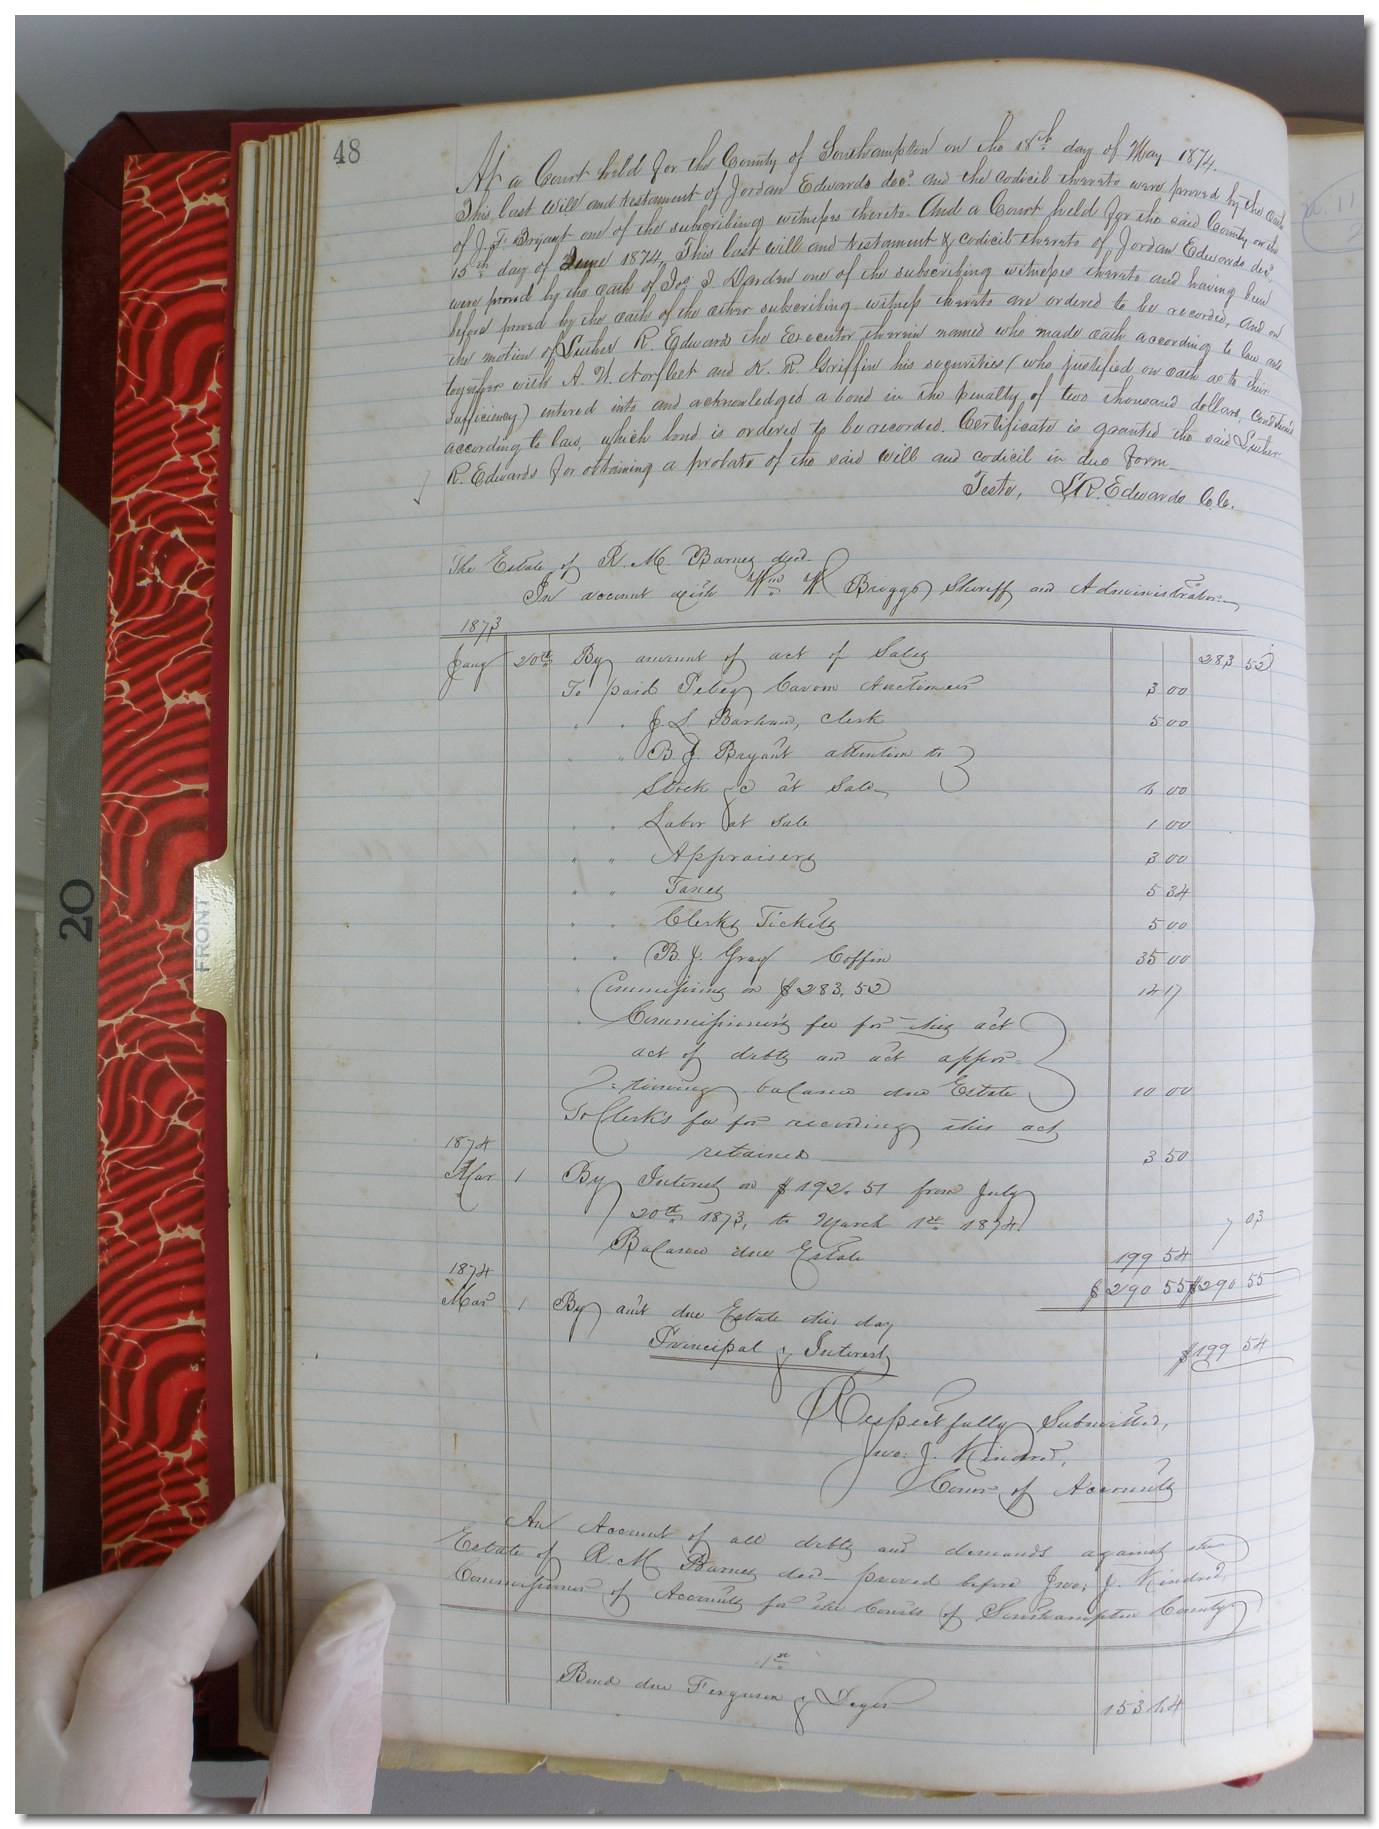 48
At a Court held for the County of Southampton on the 18th day of May 1874.
This last will and testament of Jordan Edwards decd and the codicil thereto were proved by the oath
of J. T. Bryant one of the subscribing witness thereto. And a Court held for the said County on the
15th day of June 1874, This last will and testament & codicil thereto of Jordan Edwards decd
were proved by the oath of Jos J. Darden one of the subscribing witness thereto and having been
before proved by the oath of the other subscribing witness thereto are ordered to be recorded, and on
the motion of Luther R. Edwards the Executor therein named who made oath according to law and
together with A. W. Norfleet and K. R. Griffin his securities (who justified on oath as to their
sufficiency) entered into and acknowledged a bond in the penalty of two thousand dollars, conditioned
according to law, which bond is ordered to be recorded. Certificate is granted the said Luther
R. Edwards for obtaining a probate of the said will and codicil in due form
Teste, L R. Edwards C.C.
The Estate of R. M. Barnes decd
In account with Wm W Briggs Sheriff and Administrator
1873
Jany 20th By amount of act of Sales 283 52
To paid Peley Cavom Auctioneer 3 00
" " J. L. Barham, Clerk 5 00
" " B. J. Bryant attention to
Stock &c at Sale 6 00
" " Labor at Sale 1 00
" " Appraisers 3 00
" " Taxes 5 34
" " Clerks Tickets 5 00
" " B. J. Gray Coffin 35 00
" Commissions on $283.52 14 17
" Commissioner's fee for this act
act of debts and act appor-
-tioning balance due Estate 10 00
To Clerk's fee for recording this act
retained 3 50
1874
Mar 1 By Interest on $192.51 from July
20th 1873, to March 1st 1874. 7 03
Balance due Estate 199 54
$290 55 $290 55
1874
Mar 1 By amt due Estate this day
Principal & Interest $199 54
Respectfully Submitted,
Jno: J. Kindred,
Comr of Accounts
An Account of all debts and demands against the
Estate of R M Barnes decd proved before Jno; J. Kindred,
Commissioner of Accounts for the Courts of Southampton County
1st
Bond due Ferguson & Deyer 153 64
FRONT
20